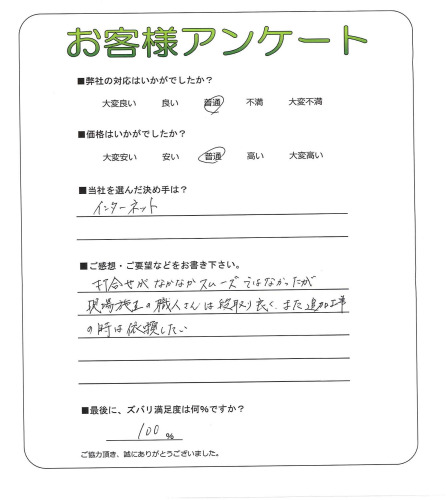 お客様アンケート
■弊社の対応はいかがでしたか？
大変良い 良い 普通 不満 大変不満
■価格はいかがでしたか？
大変安い 安い 普通 高い 大変高い
■当社を選んだ決め手は？
インターネット
■ご感想・ご要望などをお書き下さい。
打合せがなかなかスムーズではなかったが
現場施工の職人さんは段取り良く、また追加工事
の時は依頼したい
■最後に、ズバリ満足度は何％ですか？
100 %
ご協力頂き、誠にありがとうございました。